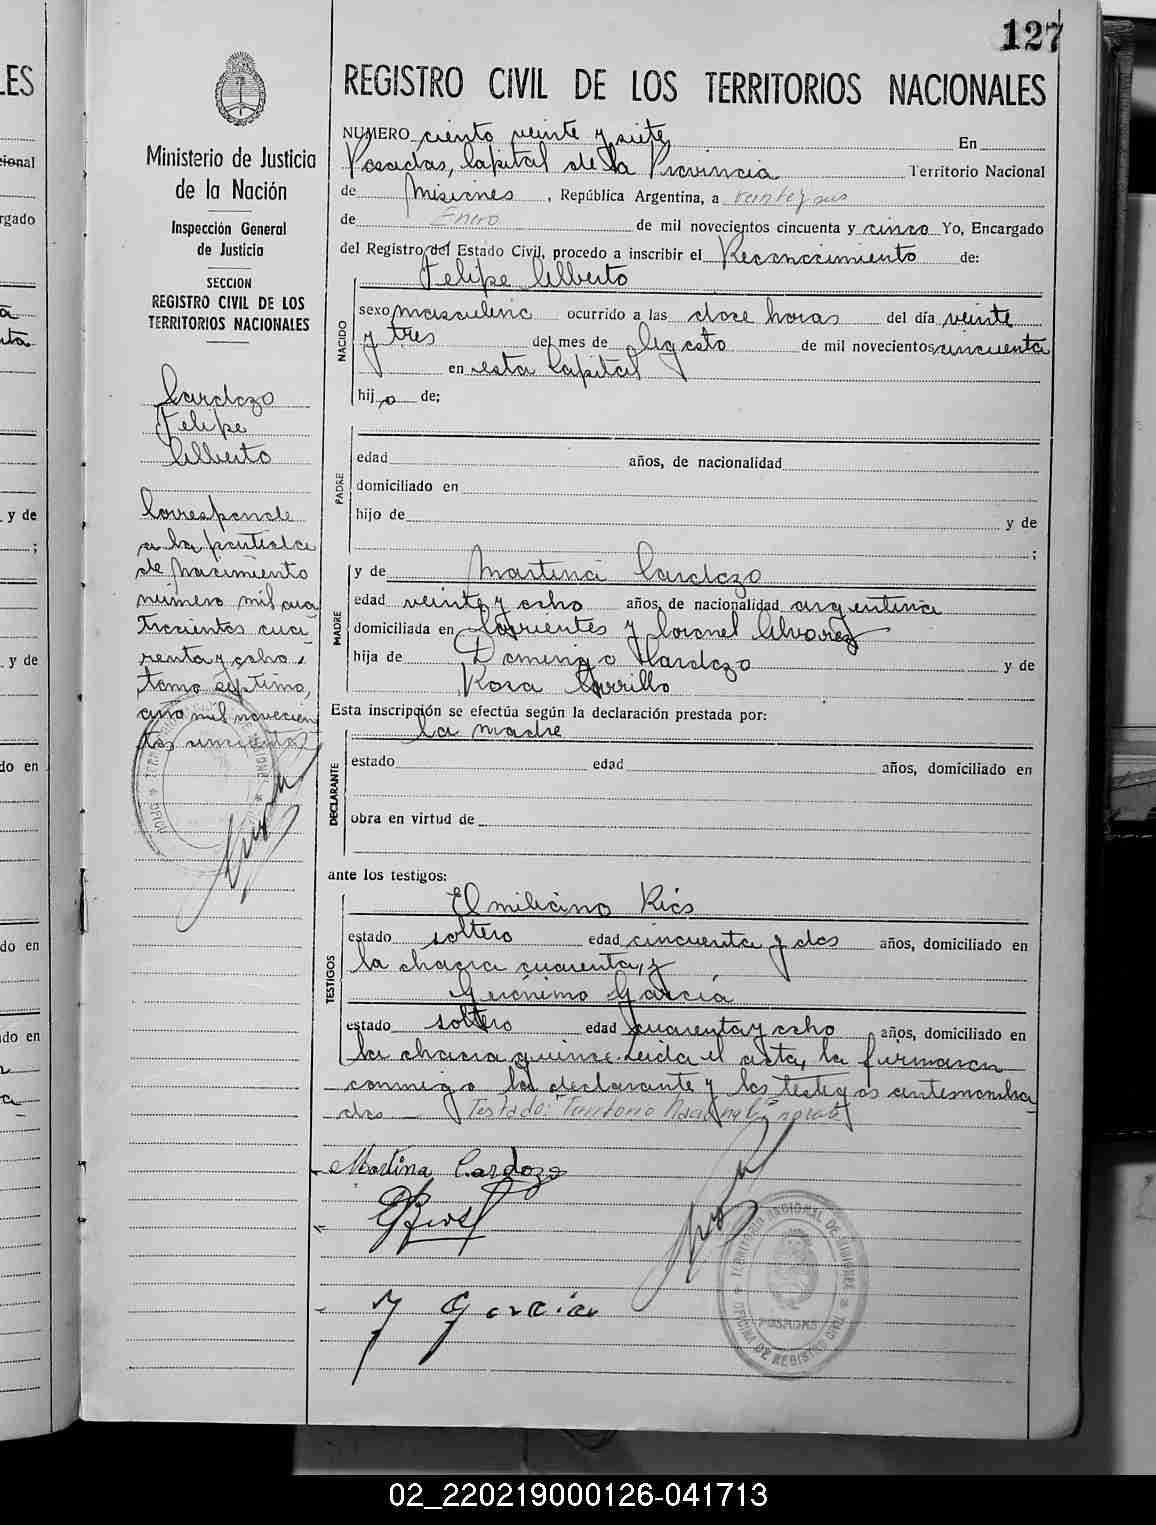 127
REGISTRO CIVIL DE LOS TERRITORIOS NACIONALES
Ministerio de Justicia
de la Nación
Inspección General
de Justicia
SECCION
REGISTRO CIVIL DE LOS
TERRITORIOS NACIONALES
Cardozo
Felipe
Alberto
Corresponde
a la partida
de nacimiento
número mil cua
trocientos cua-
renta y ocho,
tomo séptimo,
año mil novecien
tos cincuenta
NUMERO ciento veinte y siete En
Posadas, Capital de la Provincia Territorio Nacional
de Misiones, República Argentina, a veinte y seis
de Enero de mil novecientos cincuenta y cinco Yo, Encargado
del Registro del Estado Civil, procedo a inscribir el Reconocimiento de:
Felipe Alberto
NACIDO
sexo masculino ocurrido a las doce horas del día veinte
y tres del mes de Agosto de mil novecientos cincuenta
en esta Capital
hijo de;
PADRE
edad años, de nacionalidad
domiciliado en
hijo de y de
;
MADRE
y de Martina Cardozo
edad veinte y ocho años, de nacionalidad argentina
domiciliada en Corrientes y Coronel Alvarez
hija de Domingo Cardozo y de
Rosa Carrillo
Esta inscripción se efectúa según la declaración prestada por:
la madre
DECLARANTE
estado edad años, domiciliado en
obra en virtud de
ante los testigos:
TESTIGOS
Elmilicino Rios
estado soltero edad cincuenta y dos años, domiciliado en
la chacra cuarenta, y
Gerónimo García
estado soltero edad cuarenta y ocho años, domiciliado en
la chacra quince. Leida el acta, la firmaron
conmigo la declarante y los testigos antesnombra
dos Testado: "Territorio Nacional"
Martina Cardozo
ERios
J Garcia
TERRITORIO NACIONAL DE MISIONES
POSADAS
OFICINA DE REGISTRO CIVIL
02_220219000126-041713